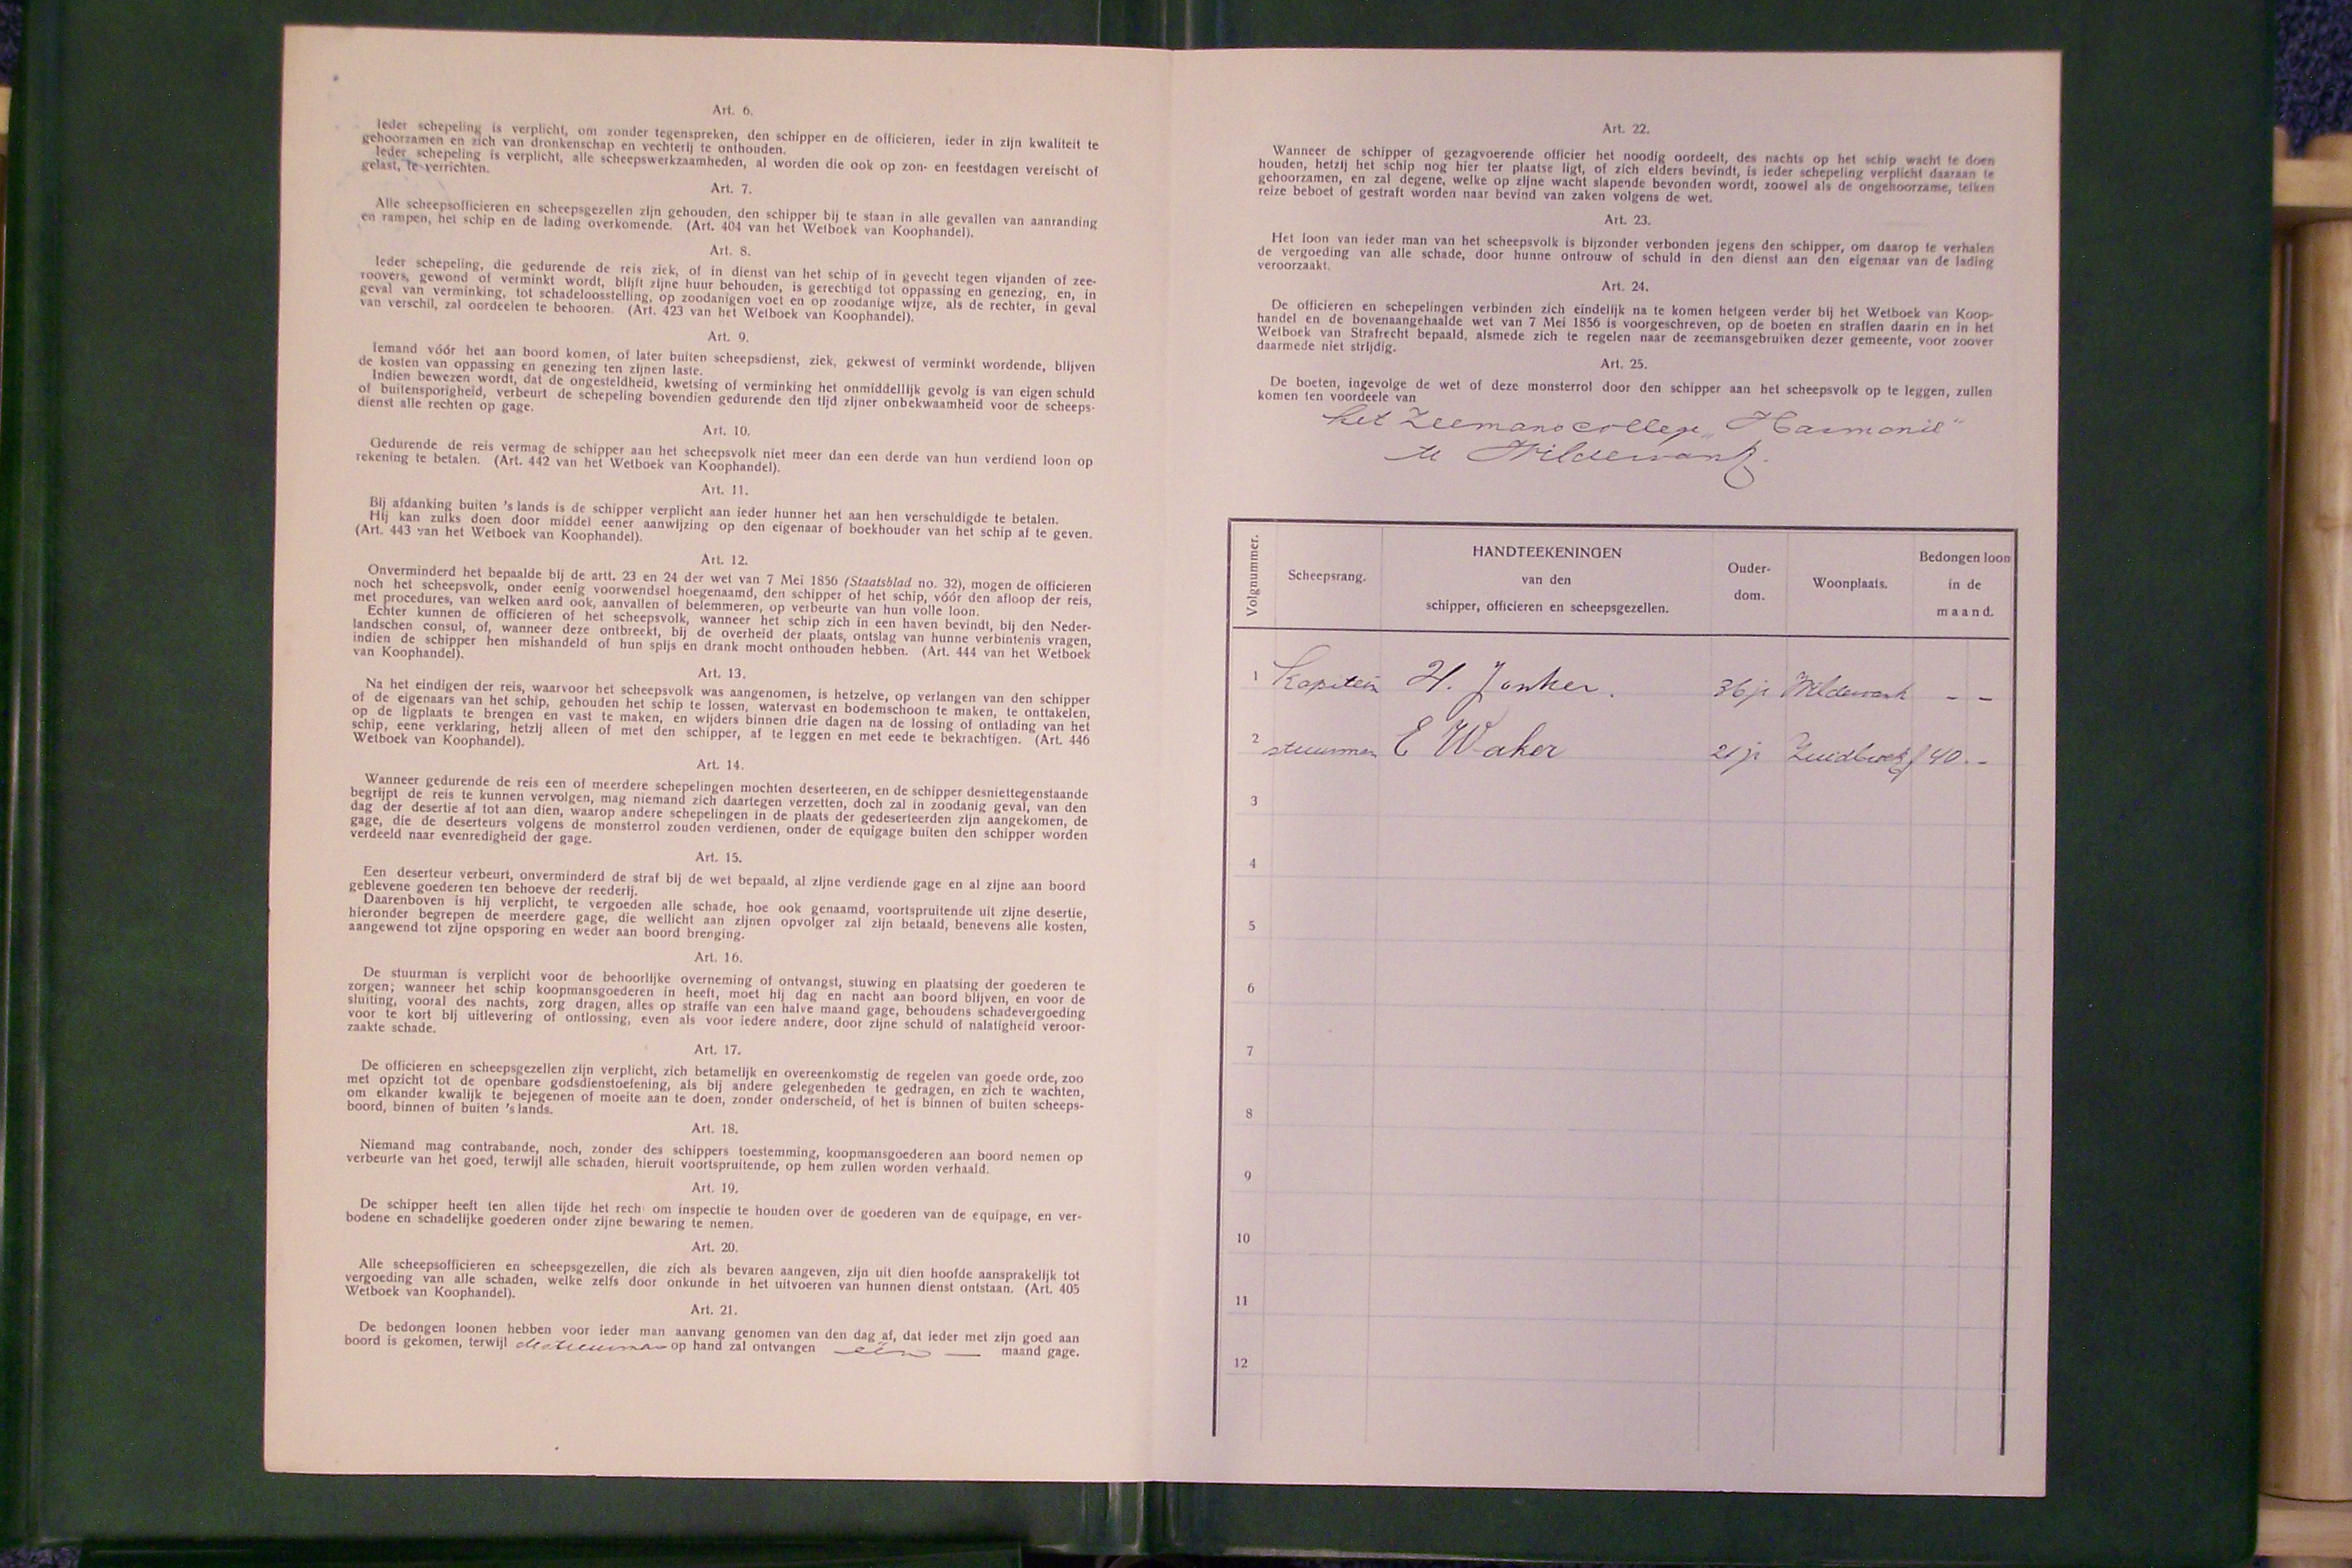 Art. 6.
Ieder schepeling is verplicht, om zonder tegenspreken, den schipper en de officieren, ieder in zijn kwaliteit te
gehoorzamen en zich van dronkenschap en vechterij te onthouden.
Ieder schepeling is verplicht, alle scheepswerkzaamheden, al worden die ook op zon- en feestdagen vereischt of
gelast, te verrichten.
Art. 7.
Alle scheepsofficieren en scheepsgezellen zijn gehouden, den schipper bij te staan in alle gevallen van aanranding
en rampen, het schip en de lading overkomende. (Art. 404 van het Wetboek van Koophandel).
Art. 8.
Ieder schepeling, die gedurende de reis ziek, of in dienst van het schip of in gevecht tegen vijanden of zee-
roovers, gewond of verminkt wordt, blijft zijne huur behouden, is gerechtigd tot oppassing en genezing, en, in
geval van verminking, tot schadeloosstelling, op zoodanigen voet en op zoodanige wijze, als de rechter, in geval
van verschil, zal oordeelen te behooren. (Art. 423 van het Wetboek van Koophandel).
Art. 9.
Iemand vóór het aan boord komen, of later buiten scheepsdienst, ziek, gekwest of verminkt wordende, blijven
de kosten van oppassing en genezing ten zijnen laste.
Indien bewezen wordt, dat de ongesteldheid, kwetsing of verminking het onmiddellijk gevolg is van eigen schuld
of buitensporigheid, verbeurt de schepeling bovendien gedurende den tijd zijner onbekwaamheid voor de scheeps-
dienst alle rechten op gage.
Art. 10.
Gedurende de reis vermag de schipper aan het scheepsvolk niet meer dan een derde van hun verdiend loon op
rekening te betalen. (Art. 442 van het Wetboek van Koophandel).
Art. 11.
Bij afdanking buiten 's lands is de schipper verplicht aan ieder hunner het aan hen verschuldigde te betalen.
Hij kan zulks doen door middel eener aanwijzing op den eigenaar of boekhouder van het schip af te geven.
(Art. 443 van het Wetboek van Koophandel).
Art. 12.
Onverminderd het bepaalde bij de artt. 23 en 24 der wet van 7 Mei 1856 (Staatsblad no. 32), mogen de officieren
noch het scheepsvolk, onder eenig voorwendsel hoegenaamd, den schipper of het schip, vóór den afloop der reis,
met procedures, van welken aard ook, aanvallen of belemmeren, op verbeurte van hun volle loon.
Echter kunnen de officieren of het scheepsvolk, wanneer het schip zich in een haven bevindt, bij den Neder-
landschen consul, of, wanneer deze ontbreekt, bij de overheid der plaats, ontslag van hunne verbintenis vragen,
indien de schipper hen mishandeld of hun spijs en drank mocht onthouden hebben. (Art. 444 van het Wetboek
van Koophandel).
Art. 13.
Na het eindigen der reis, waarvoor het scheepsvolk was aangenomen, is hetzelve, op verlangen van den schipper
of de eigenaars van het schip, gehouden het schip te lossen, watervast en bodemschoon te maken, te onttakelen,
op de ligplaats te brengen en vast te maken, en wijders binnen drie dagen na de lossing of ontlading van het
schip, eene verklaring, hetzij alleen of met den schipper, af te leggen en met eede te bekrachtigen. (Art. 446
Wetboek van Koophandel).
Art. 14.
Wanneer gedurende de reis een of meerdere schepelingen mochten deserteeren, en de schipper desniettegenstaande
begrijpt de reis te kunnen vervolgen, mag niemand zich daartegen verzetten, doch zal in zoodanig geval, van den
dag der desertie af tot aan dien, waarop andere schepelingen in de plaats der gedeserteerden zijn aangekomen, de
gage, die de deserteurs volgens de monsterrol zouden verdienen, onder de equigage buiten den schipper worden
verdeeld naar evenredigheid der gage.
Art. 15.
Een deserteur verbeurt, onverminderd de straf bij de wet bepaald, al zijne verdiende gage en al zijne aan boord
geblevene goederen ten behoeve der reederij.
Daarenboven is hij verplicht, te vergoeden alle schade, hoe ook genaamd, voortspruitende uit zijne desertie,
hieronder begrepen de meerdere gage, die wellicht aan zijnen opvolger zal zijn betaald, benevens alle kosten,
aangewend tot zijne opsporing en weder aan boord brenging.
Art. 16.
De stuurman is verplicht voor de behoorlijke overneming of ontvangst, stuwing en plaatsing der goederen te
zorgen; wanneer het schip koopmansgoederen in heeft, moet hij dag en nacht aan boord blijven, en voor de
sluiting, vooral des nachts, zorg dragen, alles op straffe van een halve maand gage, behoudens schadevergoeding
voor te kort bij uitlevering of ontlossing, even als voor iedere andere, door zijne schuld of nalatigheid veroor-
zaakte schade.
Art. 17.
De officieren en scheepsgezellen zijn verplicht, zich betamelijk en overeenkomstig de regelen van goede orde, zoo
met opzicht tot de openbare godsdienstoefening, als bij andere gelegenheden te gedragen, en zich te wachten,
om elkander kwalijk te bejegenen of moeite aan te doen, zonder onderscheid, of het is binnen of buiten scheeps-
boord, binnen of buiten 's lands.
Art. 18.
Niemand mag contrabande, noch, zonder des schippers toestemming, koopmansgoederen aan boord nemen op
verbeurte van het goed, terwijl alle schaden, hieruit voortspruitende, op hem zullen worden verhaald.
Art. 19.
De schipper heeft ten allen tijde het rech om inspectie te houden over de goederen van de equipage, en ver-
bodene en schadelijke goederen onder zijne bewaring te nemen.
Art. 20.
Alle scheepsofficieren en scheepsgezellen, die zich als bevaren aangeven, zijn uit dien hoofde aansprakelijk tot
vergoeding van alle schaden, welke zelfs door onkunde in het uitvoeren van hunnen dienst ontstaan. (Art. 405
Wetboek van Koophandel).
Art. 21.
De bedongen loonen hebben voor ieder man aanvang genomen van den dag af, dat ieder met zijn goed aan
boord is gekomen, terwijl de stuurman op hand zal ontvangen één — maand gage.
Art. 22.
Wanneer de schipper of gezagvoerende officier het noodig oordeelt, des nachts op het schip wacht te doen
houden, hetzij het schip nog hier ter plaatse ligt, of zich elders bevindt, is ieder schepeling verplicht daaraan te
gehoorzamen, en zal degene, welke op zijne wacht slapende bevonden wordt, zoowel als de ongehoorzame, telken
reize beboet of gestraft worden naar bevind van zaken volgens de wet.
Art. 23.
Het loon van ieder man van het scheepsvolk is bijzonder verbonden jegens den schipper, om daarop te verhalen
de vergoeding van alle schade, door hunne ontrouw of schuld in den dienst aan den eigenaar van de lading
veroorzaakt.
Art. 24.
De officieren en schepelingen verbinden zich eindelijk na te komen hetgeen verder bij het Wetboek van Koop-
handel en de bovenaangehaalde wet van 7 Mei 1856 is voorgeschreven, op de boeten en straffen daarin en in het
Wetboek van Strafrecht bepaald, alsmede zich te regelen naar de zeemansgebruiken dezer gemeente, voor zoover
daarmede niet strijdig.
Art. 25.
De boeten, ingevolge de wet of deze monsterrol door den schipper aan het scheepsvolk op te leggen, zullen
komen ten voordeele van
het Zeemanscollege „Harmonie"
te Wildervank.
Volgnummer. Scheepsrang. HANDTEEKENINGEN van den schipper, officieren en scheepsgezellen. Ouder-dom. Woonplaats. Bedongen loon in de maand.
1 Kapitein H. Jonker. 36 jr Wildervank - -
2 stuurman E Waker 21 jr Zuidbroek f 40.-
3
4
5
6
7
8
9
10
11
12